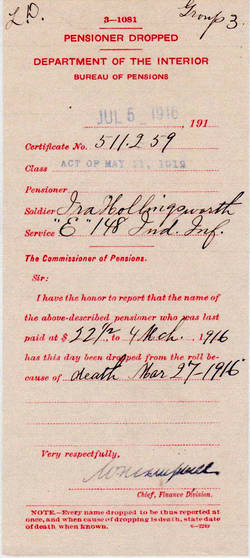 L.D. Group 3.
3—1081
PENSIONER DROPPED
DEPARTMENT OF THE INTERIOR
BUREAU OF PENSIONS
JUL 5 1916 191
Certificate No. 511.259
Class ACT OF MAY 11, 1912
Pensioner
Soldier Ira Hollingsworth
Service "E" 148 Ind. Inf.
The Commissioner of Pensions.
Sir:
I have the honor to report that the name of
the above-described pensioner who was last
paid at $ 22 1/2, to 4 Mch., 1916
has this day been dropped from the roll be-
cause of death Mar 27-1916
Very respectfully,
Chief, Finance Division.
NOTE.—Every name dropped to be thus reported at
once, and when cause of dropping is death, state date
of death when known.